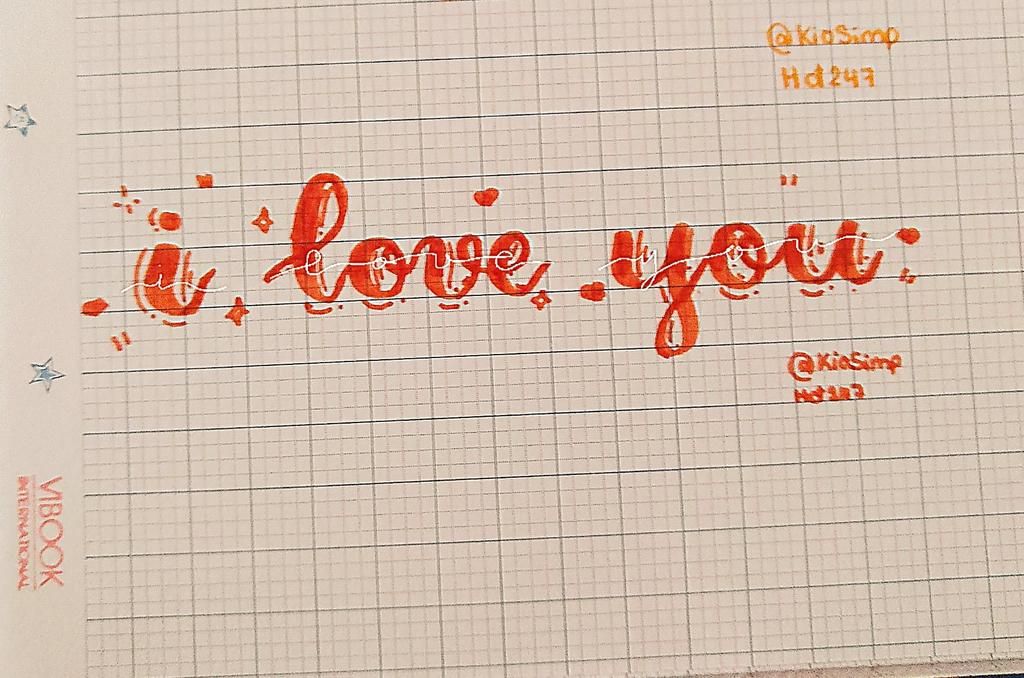 @KioSimp
Hd247
i love you
i love you
@KioSimp
Hd247
VIBOOK
INTERNATIONAL